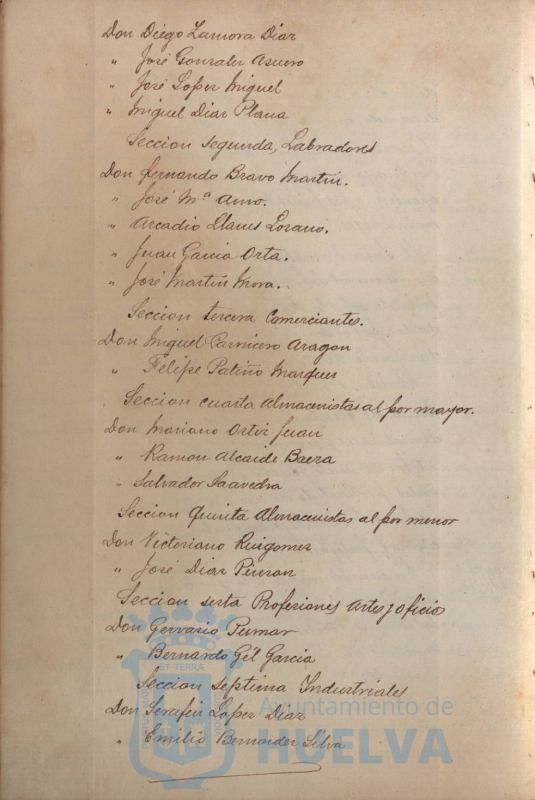 Don Diego Zamora Diaz
" José Gonzalez Asuero
" José Lopez Miguel
" Miguel Diaz Plaua
Seccion segunda, Labradores
Don Fernando Bravo Martin.
" José Mª Amo.
" Arcadio Llanes Lozano.
" Juan Garcia Orta.
" José Martin Mora.
Seccion tercera Comerciantes.
Don Miguel Carnicero Aragon
" Felipe Patiño Marquez
Seccion cuarta Almacenistas al por mayor.
Don Mariano Ortiz Juan
" Ramon Alcaide Baeza
" Salvador Saavedra
Seccion Quinta Almacenistas al por menor
Don Victoriano Ruigomez
" José Diaz Pinzon
Seccion sexta Profesiones Artes y oficio
Don Gervasio Pumar
" Bernardo Gil Garcia
Seccion septima Industriales
Don Serafin Lopez Diaz
" Emilio Bernardez Silva
ET TERRA
Ayuntamiento de
HUELVA